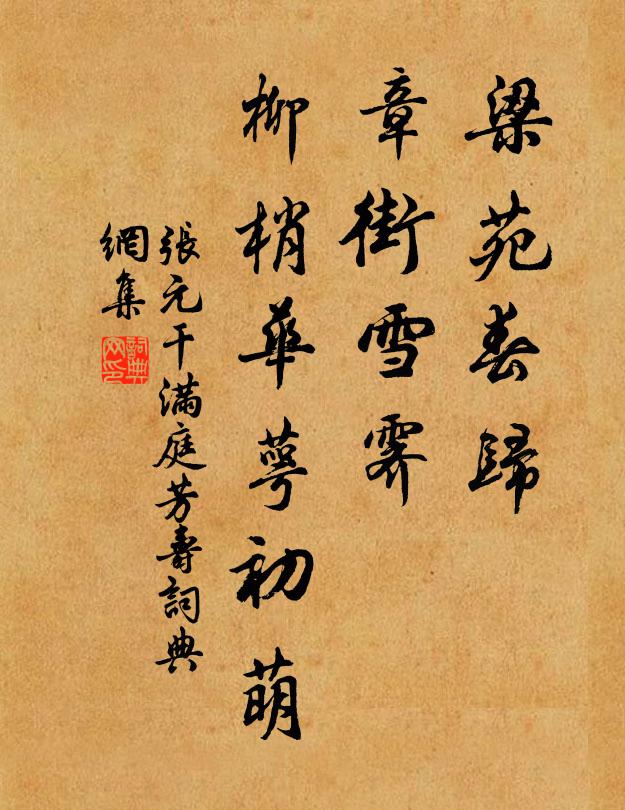 梁苑春歸
章街雪霽
柳梢華萼初萌
張元干滿庭芳壽詞典
網集
詞典
网印